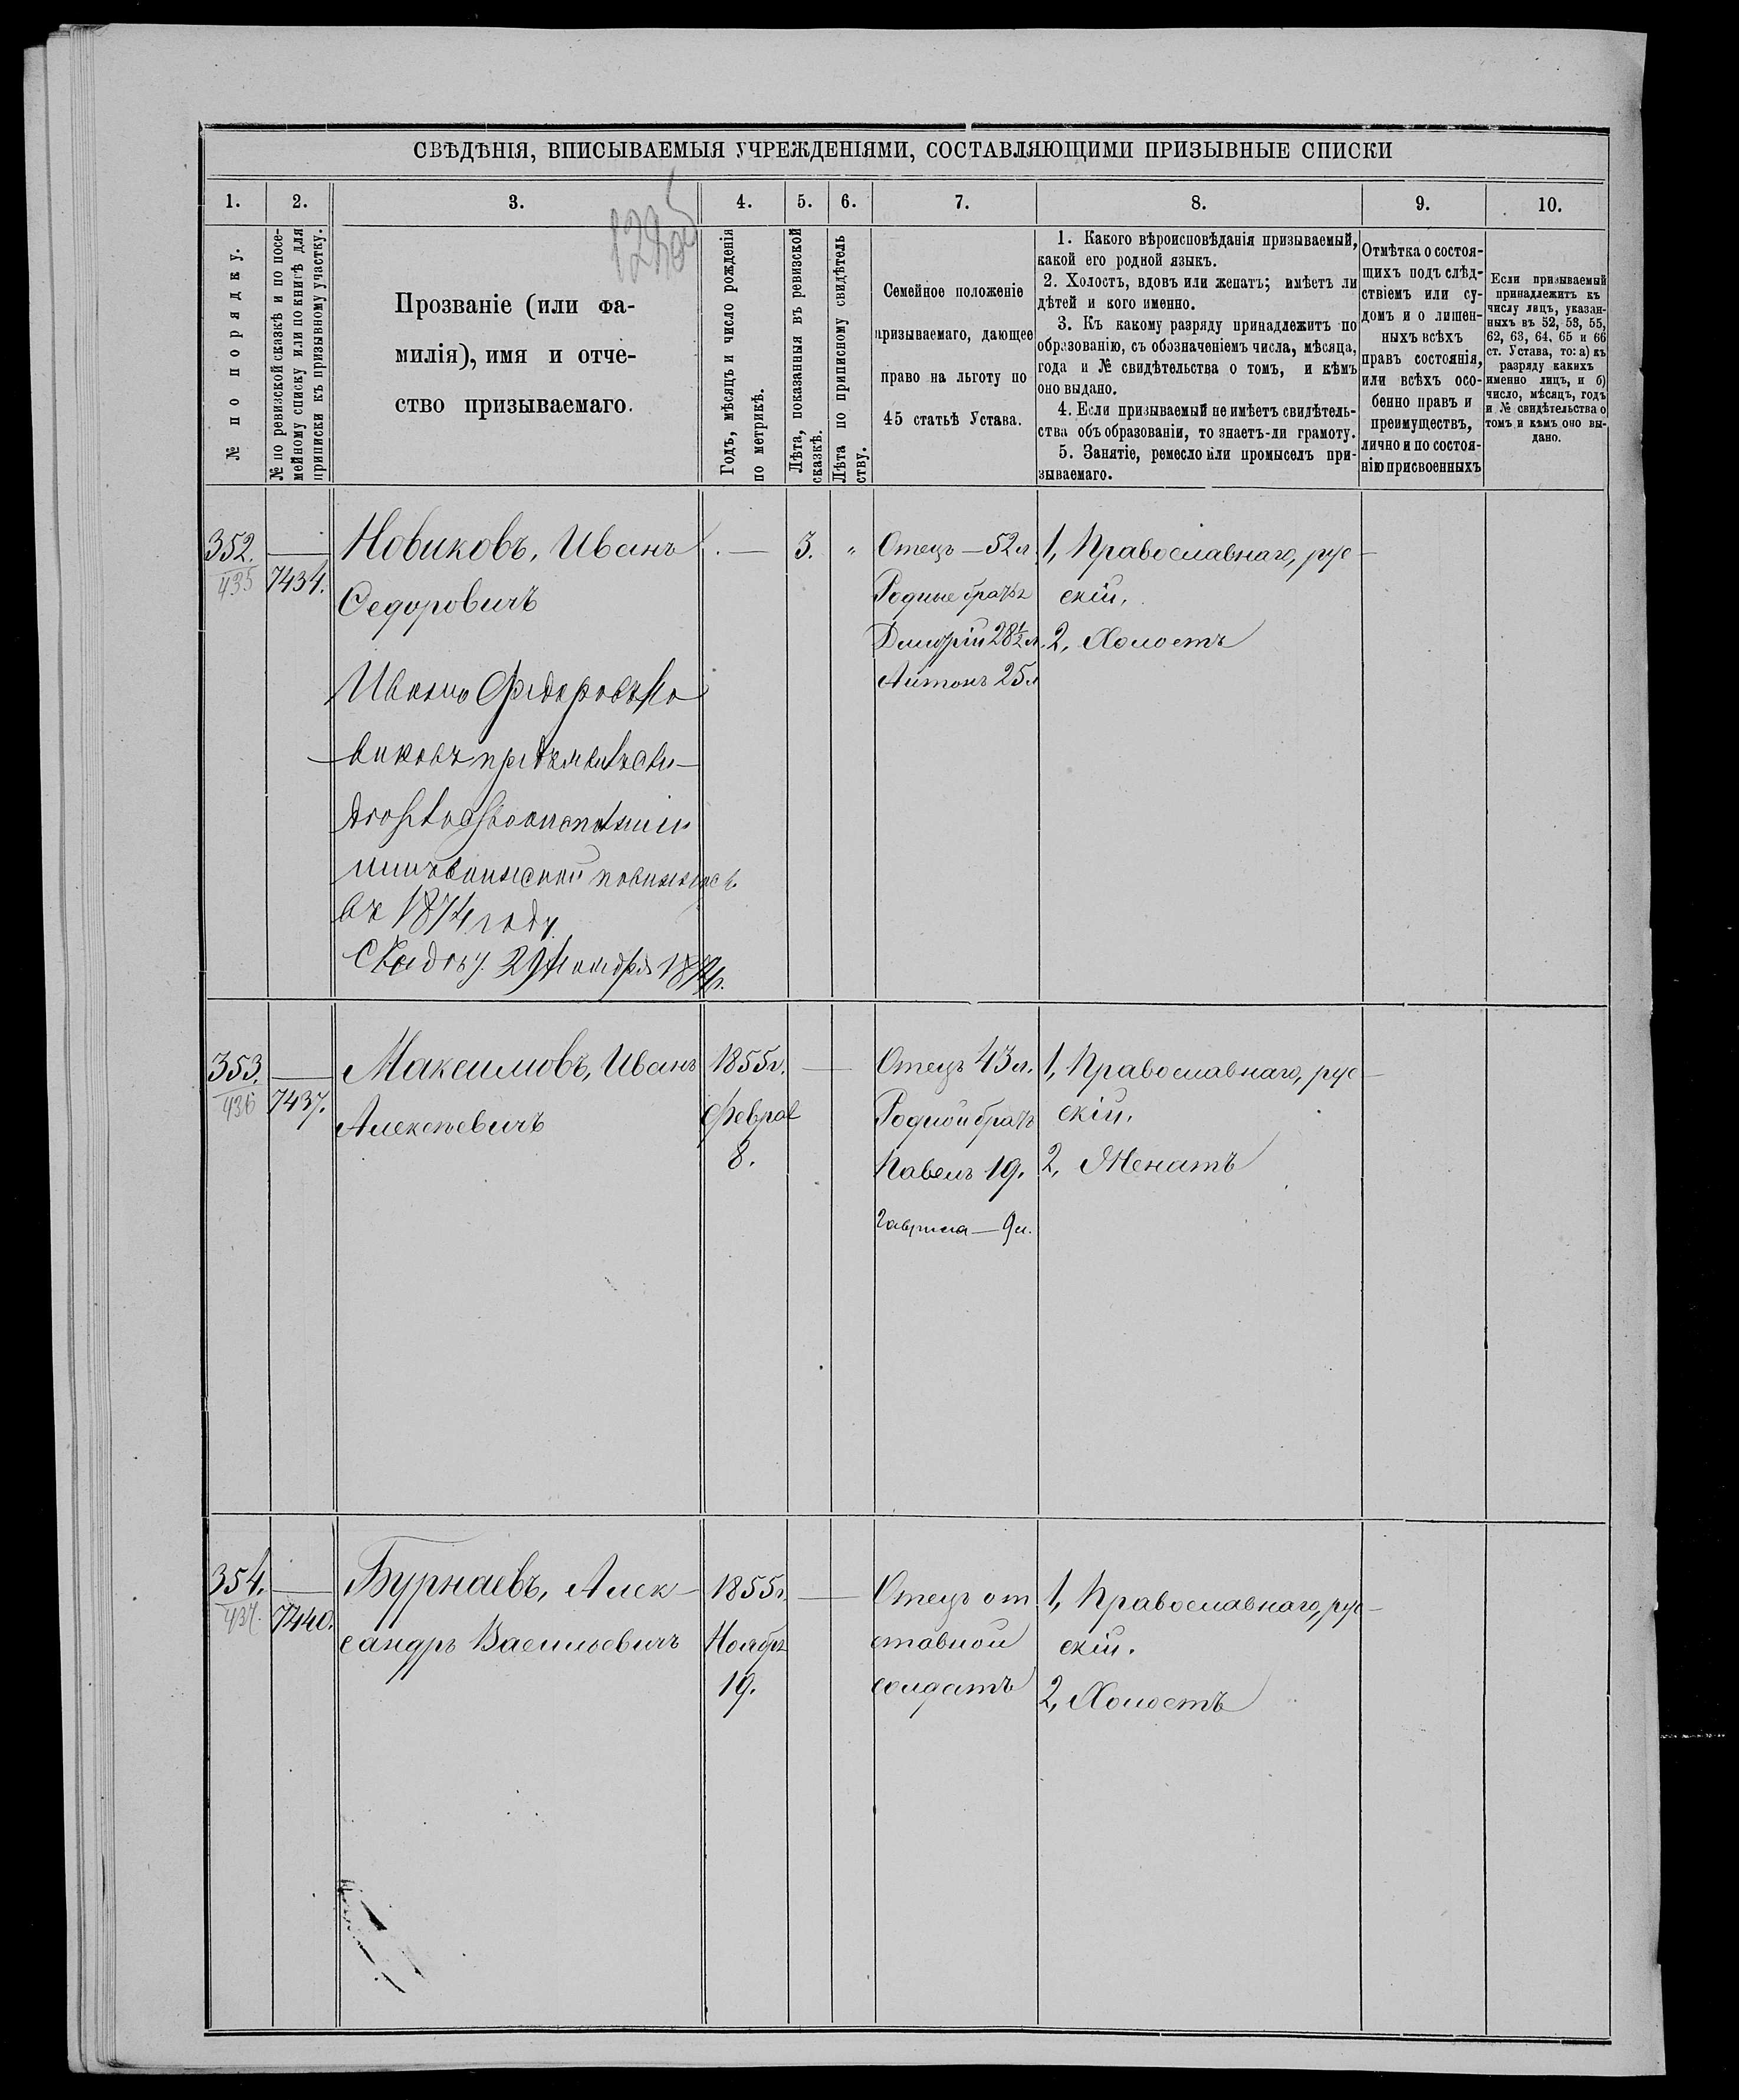 СВѢДѢНІЯ, ВПИСЫВАЕМЫЯ УЧРЕЖДЕНІЯМИ, СОСТАВЛЯЮЩИМИ ПРИЗЫВНЫЕ СПИСКИ
1. 2. 3. 4. 5. 6. 7. 8. 9. 10.
№ по порядку.
№ по ревизской сказкѣ и по посе-
мейному списку или по книгѣ для
приписки къ призывному участку.
Прозваніе (или фа-
милія), имя и отче-
ство призываемаго.
Годъ, мѣсяцъ и число рожденія
по метрикѣ.
Лѣта, показанныя въ ревизской
сказкѣ.
Лѣта по приписному свидѣтель
ству.
Семейное положеніе
призываемаго, дающее
право на льготу по
45 статьѣ Устава.
1. Какого вѣроисповѣданія призываемый,
какой его родной языкъ.
2. Холостъ, вдовъ или женатъ; имѣетъ ли
дѣтей и кого именно.
3. Къ какому разряду принадлежитъ по
образованію, съ обозначеніемъ числа, мѣсяца,
года и № свидѣтельства о томъ, и кѣмъ
оно выдано.
4. Если призываемый не имѣетъ свидѣтель-
ства объ образованіи, то знаетъ-ли грамоту.
5. Занятіе, ремесло или промыселъ при-
зываемаго.
Отмѣтка о состоя-
щихъ подъ слѣд-
ствіемъ или су-
домъ и о лишен-
ныхъ всѣхъ
правъ состоянія,
или всѣхъ осо-
бенно правъ и
преимуществъ,
лично и по состоя-
нію присвоенныхъ
Если призываемый
принадлежитъ къ
числу лицъ, указан-
ныхъ въ 52, 53, 55,
62, 63, 64, 65 и 66
ст. Устава, то: а) къ
разряду какихъ
именно лицъ, и б)
число, мѣсяцъ, годъ
и № свидѣтельства о
томъ и кѣмъ оно вы-
дано.
352.
435
7434.
Новиковъ, Иванъ
Ѳедоровичъ
Иванъ Федоровъ Но
виковъ
воинской
въ 1874 году
29
3. "
Отецъ — 52 л.
Родные братья
Дмитрій 28½ л.
Антонъ 25 л
1, Православнаго, рус
скій.
2, Холостъ
353.
436
7437.
Максимовъ, Иванъ
Алексѣевичъ
1855 г.
Феврал
8.
Отецъ 43 л.
Родной братъ
Павелъ 19.
Гаврила — 9 л.
1, Православнаго, рус
скій.
2, Женатъ
354.
437.
7440.
Бурнаевъ, Алек-
сандръ Васильевичъ
1855 г.
Ноябр
19.
Отецъ от
ставной
солдатъ
1, Православнаго, рус
скій.
2, Холостъ